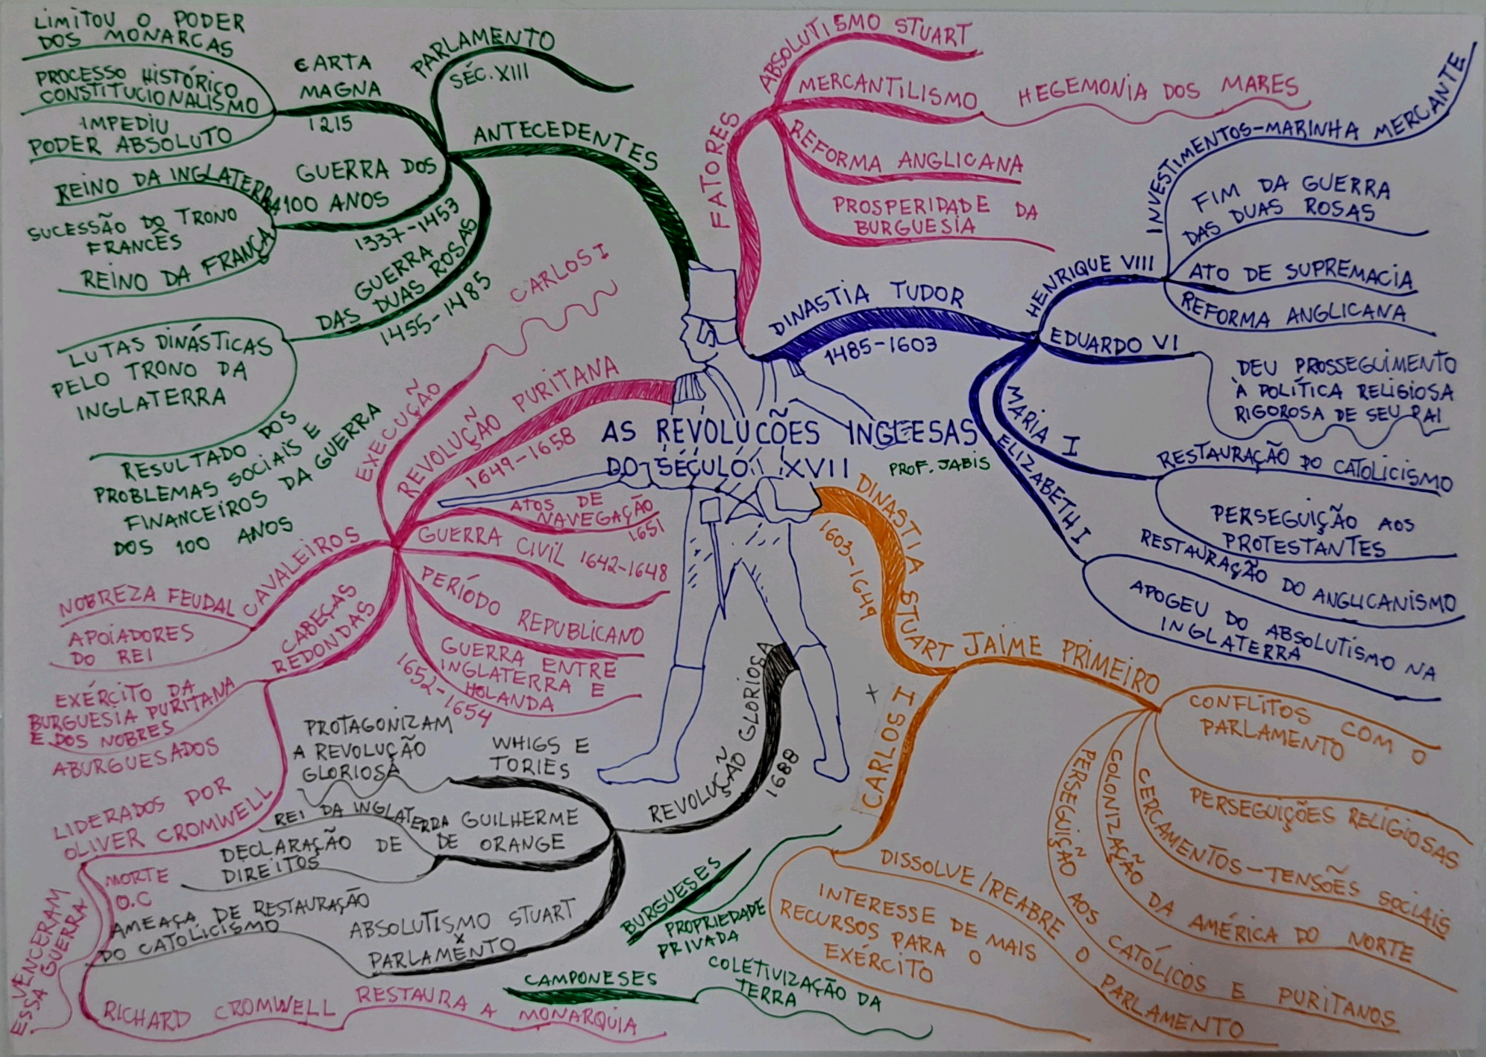 AS REVOLUÇÕES INGLESAS
DO SÉCULO XVII
PROF. JABIS
ANTECEDENTES
PARLAMENTO
SÉC. XIII
CARTA
MAGNA
1215
LIMITOU O PODER
DOS MONARCAS
PROCESSO HISTÓRICO
CONSTITUCIONALISMO
IMPEDIU
PODER ABSOLUTO
GUERRA DOS
100 ANOS
1337-1453
REINO DA INGLATERRA
SUCESSÃO DO TRONO
FRANCÊS
REINO DA FRANÇA
GUERRA
DAS DUAS ROSAS
1455-1485
LUTAS DINÁSTICAS
PELO TRONO DA
INGLATERRA
RESULTADO DOS
PROBLEMAS SOCIAIS E
FINANCEIROS DA GUERRA
DOS 100 ANOS
FATORES
ABSOLUTISMO STUART
MERCANTILISMO
HEGEMONIA DOS MARES
REFORMA ANGLICANA
PROSPERIDADE DA
BURGUESIA
DINASTIA TUDOR
1485-1603
HENRIQUE VIII
INVESTIMENTOS-MARINHA MERCANTE
FIM DA GUERRA
DAS DUAS ROSAS
ATO DE SUPREMACIA
REFORMA ANGLICANA
EDUARDO VI
DEU PROSSEGUIMENTO
À POLÍTICA RELIGIOSA
RIGOROSA DE SEU RAI
MARIA I
RESTAURAÇÃO DO CATOLICISMO
PERSEGUIÇÃO AOS
PROTESTANTES
ELIZABETH I
RESTAURAÇÃO DO ANGLICANISMO
APOGEU DO ABSOLUTISMO NA
INGLATERRA
DINASTIA STUART
1603-1649
JAIME PRIMEIRO
CONFLITOS COM O
PARLAMENTO
PERSEGUIÇÕES RELIGIOSAS
CERCAMENTOS-TENSÕES SOCIAIS
COLONIZAÇÃO DA AMÉRICA DO NORTE
PERSEGUIÇÃO AOS CATÓLICOS E PURITANOS
CARLOS I
DISSOLVE/REABRE O PARLAMENTO
INTERESSE DE MAIS
RECURSOS PARA O
EXÉRCITO
REVOLUÇÃO PURITANA
1649-1658
EXECUÇÃO
CARLOS I
ATOS DE
NAVEGAÇÃO
1651
GUERRA CIVIL 1642-1648
PERÍODO REPUBLICANO
GUERRA ENTRE
INGLATERRA E
HOLANDA
1652-1654
CAVALEIROS
NOBREZA FEUDAL
APOIADORES
DO REI
CABEÇAS
REDONDAS
EXÉRCITO DA
BURGUESIA PURITANA
E DOS NOBRES
ABURGUESADOS
LIDERADOS POR
OLIVER CROMWELL
VENCERAM
ESSA GUERRA
MORTE
O.C
RICHARD CROMWELL
RESTAURA A
MONARQUIA
REVOLUÇÃO GLORIOSA
1688
WHIGS E
TORIES
PROTAGONIZAM
A REVOLUÇÃO
GLORIOSA
GUILHERME
DE ORANGE
REI DA INGLATERRA
DECLARAÇÃO DE
DIREITOS
ABSOLUTISMO STUART
X
PARLAMENTO
AMEAÇA DE RESTAURAÇÃO
DO CATOLICISMO
BURGUESES
PROPRIEDADE
PRIVADA
CAMPONESES
COLETIVIZAÇÃO DA
TERRA